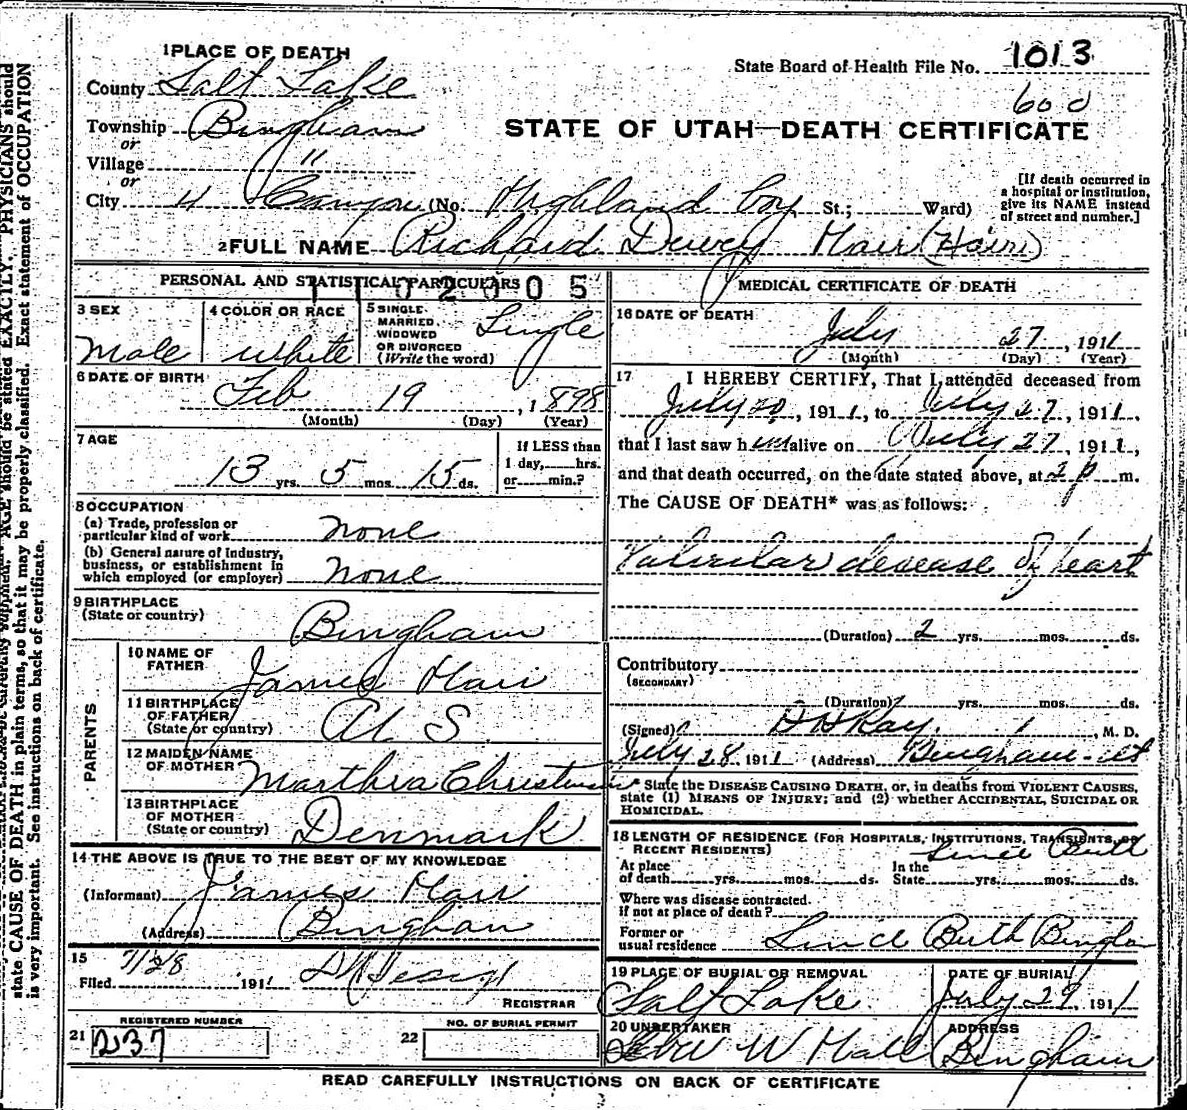 1 PLACE OF DEATH
State Board of Health File No. 1013
County Salt Lake
60 d
Township Bingham
STATE OF UTAH—DEATH CERTIFICATE
or
Village "
or
City " Canyon (No. Highland Boy St.; Ward)
[If death occurred in a hospital or institution, give its NAME instead of street and number.]
2 FULL NAME Richard Dewey Hair (Hair)
PERSONAL AND STATISTICAL PARTICULARS
1102005
3 SEX Male
4 COLOR OR RACE White
5 SINGLE, MARRIED, WIDOWED OR DIVORCED (Write the word) Single
6 DATE OF BIRTH Feb 19, 1898
(Month) (Day) (Year)
7 AGE 13 yrs. 5 mos. 15 ds.
If LESS than 1 day, hrs. or min.?
8 OCCUPATION
(a) Trade, profession or particular kind of work none
(b) General nature of industry, business, or establishment in which employed (or employer) none
9 BIRTHPLACE
(State or country) Bingham
PARENTS
10 NAME OF FATHER James Hair
11 BIRTHPLACE OF FATHER (State or country) U S.
12 MAIDEN NAME OF MOTHER Marthra
13 BIRTHPLACE OF MOTHER (State or country) Denmark
14 THE ABOVE IS TRUE TO THE BEST OF MY KNOWLEDGE
(Informant) James Hair
(Address) Bingham
15 Filed 7/28 1911
REGISTRAR
REGISTERED NUMBER
21 237
NO. OF BURIAL PERMIT
22
MEDICAL CERTIFICATE OF DEATH
16 DATE OF DEATH July 27, 1911
(Month) (Day) (Year)
17 I HEREBY CERTIFY, That I attended deceased from
July 20, 1911, to July 27, 1911,
that I last saw him alive on July 27, 1911,
and that death occurred, on the date stated above, at 2 p m.
The CAUSE OF DEATH* was as follows:
Valvular desease of heart
(Duration) 2 yrs. mos. ds.
Contributory
(SECONDARY)
(Duration) yrs. mos. ds.
(Signed) Ray, M. D.
July 28 1911 (Address) Bingham - ut
* State the DISEASE CAUSING DEATH, or, in deaths from VIOLENT CAUSES,
state (1) MEANS OF INJURY; and (2) whether ACCIDENTAL, SUICIDAL OR
HOMICIDAL.
18 LENGTH OF RESIDENCE (FOR HOSPITALS, INSTITUTIONS, TRANSIENTS, OR
RECENT RESIDENTS) Since Birth
At place of death yrs. mos. ds. In the State yrs. mos. ds.
Where was disease contracted.
If not at place of death?
Former or usual residence Since Birth
19 PLACE OF BURIAL OR REMOVAL Salt Lake
DATE OF BURIAL July 29, 1911
20 UNDERTAKER W Hall
ADDRESS Bingham
READ CAREFULLY INSTRUCTIONS ON BACK OF CERTIFICATE
state CAUSE OF DEATH in plain terms, so that it may be properly classified. Exact statement of OCCUPATION
is very important. See instructions on back of certificate.